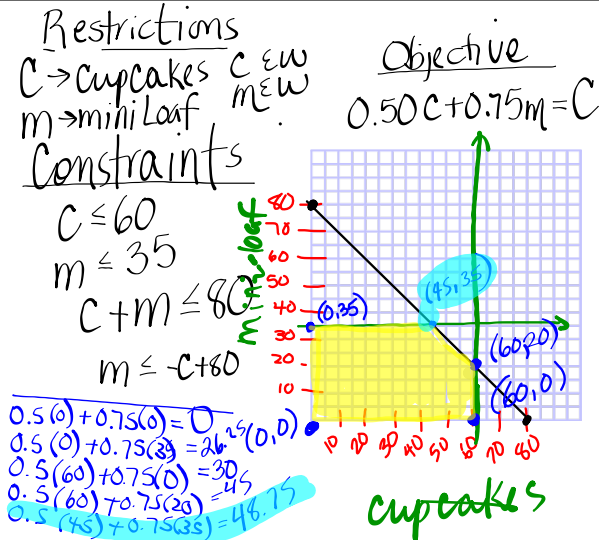 Restrictions
C → cupcakes C ε W
m → mini Loaf m ε W
Constraints
C ≤ 60
m ≤ 35
C + m ≤ 80
m ≤ -C+80
0.5(0) + 0.75(0) = 0
0.5(0) + 0.75(35) = 26.25
0.5(60) + 0.75(0) = 30
0.5(60) + 0.75(20) = 45
0.5(45) + 0.75(35) = 48.75
Objective
0.50C + 0.75m = C
mini loaf
80
70
60
50
40
30
20
10
(0,35)
(45,35)
(60,20)
(60,0)
(0,0)
10 20 30 40 50 60 70 80
cupcakes